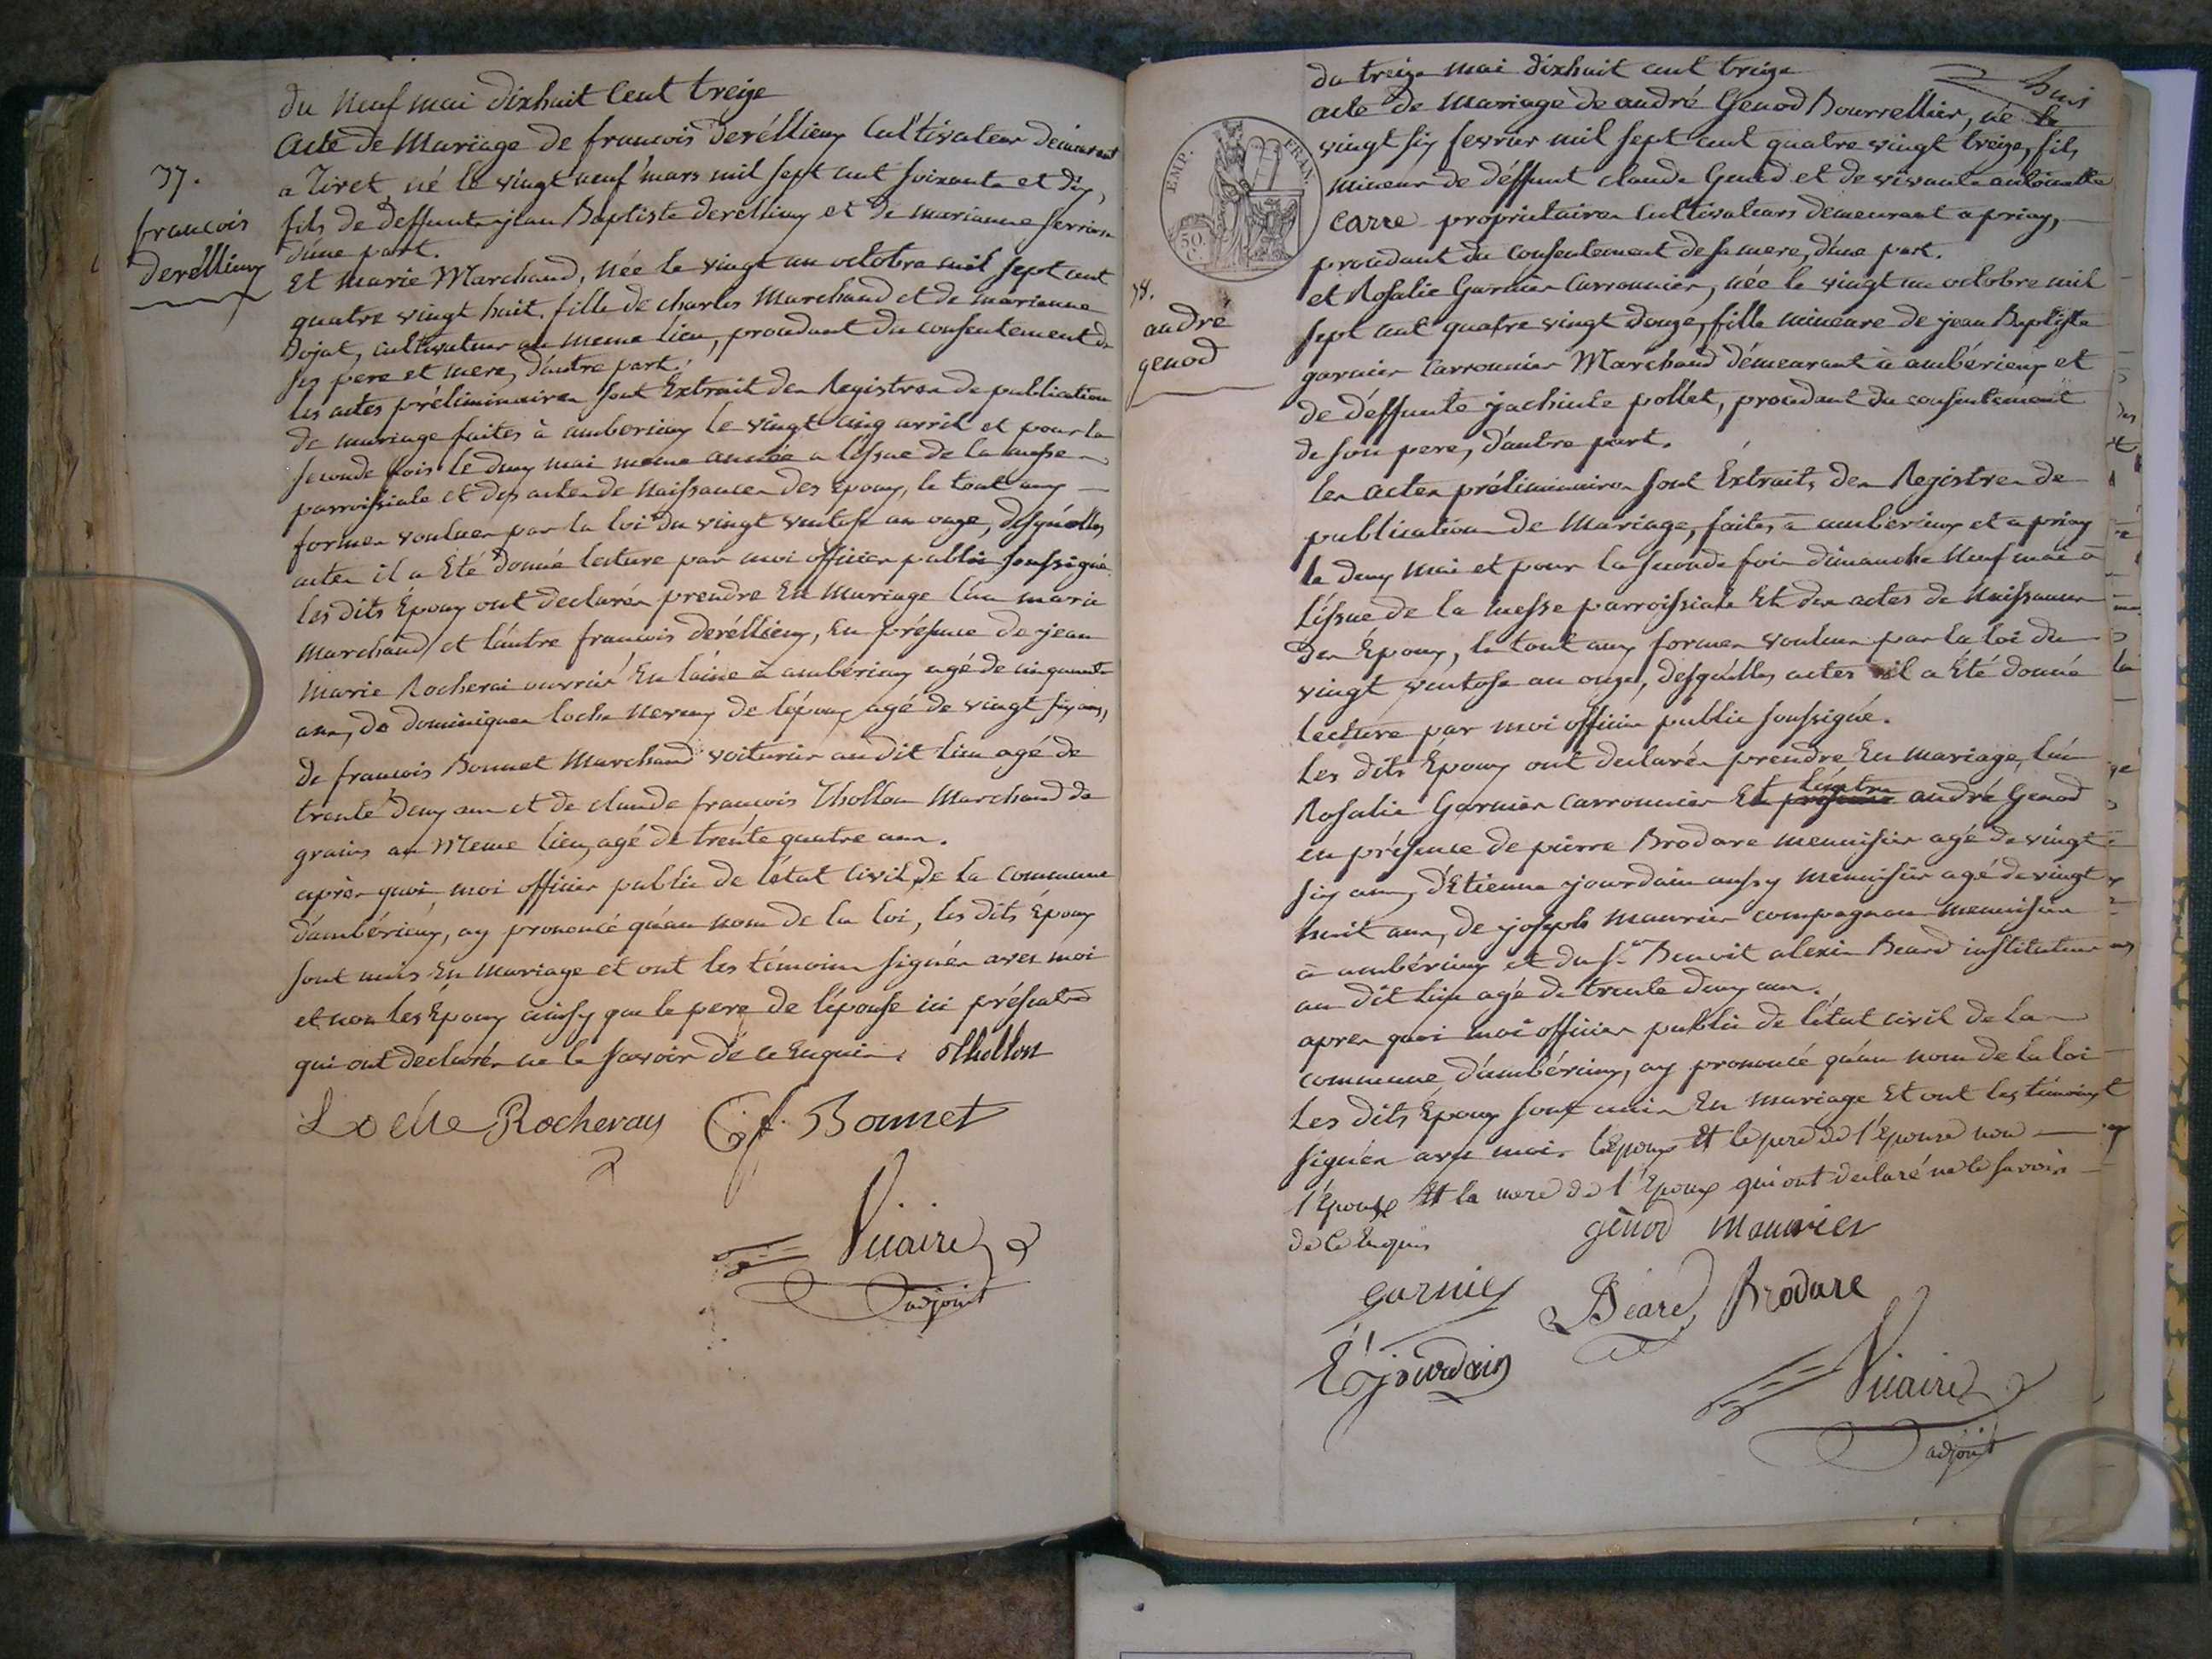 du neuf mai dixhuit cent treize
acte de Mariage de francois deréllieux Cultivateur demeurant
37.
francois
deréllieux
a Tiret, né le vingt neuf mars mil sept cent soixante et dix,
fils de deffunts jean Baptiste derellieux et de marianne
d'une part.
Et marie Marchand, née le vingt un octobre mil sept cent
quatre vingt huit, fille de charles Marchand et de marianne
Bojat, cultivateur au meme lieu, procedant du consentement de
ses pere et mere, d'autre part.
les actes préliminaires sont Extrait des Registres de publication
de mariage faites à amberieux le vingt cinq avril et pour la
seconde fois le deux mai meme année a l'issue de la messe
parroissiale et des actes de Naissances des Epoux, le tout aux
formes voulues par la loi du vingt ventose an onze, desquelles
actes il a Eté donné lecture par moi officier public soussigné.
les dits Epoux ont declarés prendre En Mariage l'un marie
Marchand et l'autre francois deréllieux, en présence de jean
Marie Rocherai ouvrier En laine à ambérieux agé de cinquante
ans, de dominique loche neveux de l'époux agé de vingt six ans,
de francois Bonnet Marchand voiturier au dit lieu agé de
trente deux ans et de claude francois Thollon Marchand de
grains au Meme lieu, agé de trente quatre ans.
après quoi, moi officier public de l'état civil, de la commune
d'ambérieux, ay prononcé qu'au nom de la loi, les dits Epoux
sont unis En Mariage et ont les témoins signés avec moi
et non les Epoux ainsy que le pere de l'épouse ici présents
qui ont declarés ne le savoir de ce Enquis. Thollon
Loche Rocheray f. Bonnet
Vicaire
adjoint
du treize mai dixhuit cent treize
acte de Mariage de andré Genod Bourrellier, né le
EMP. FRAN.
50. C.
vingt six fevrier mil sept cent quatre vingt treize, fils
mineur de déffunt claude Genod et de vivante antoinette
Carre propriétaires Cultivateurs demeurant a priay,
procedant du consentement de sa mere, d'une part.
38.
andré
genod
et Rosalie Garnier Carronnier, née le vingt un octobre mil
sept cent quatre vingt douze, fille mineure de jean Baptiste
garnier Carronnier Marchand démeurant à ambérieux et
de déffunte jachinte pollet, procedant du consentement
de son pere, d'autre part.
les actes préliminaires sont Extraits des Registres de
publication de Mariage, faites à amberieux et a priay
le deux Mai et pour la seconde fois dimanche Neuf mai à
l'issue de la messe parroissiale Et des actes de Naissances
des Epoux, le tout aux formes voulues par la loi du
vingt ventose an onze, desquélles actes il a Eté donné
lecture par moi officier public soussigné.
les dits Epoux ont declarés prendre En mariage, l'un
Rosalie Garnier Carronnier Et l'autre andré Genod
en présence de pierre Brodare menuisier agé de vingt
six ans, d'Etienne jourdain aussy Menuisier agé de vingt
huit ans, de joseph Maurier compagnon menuisier
à ambérieux et du Sr Benoit alexis Beard instituteur
au dit lieu agé de trente deux ans.
apres quoi moi officier public de l'état civil de la
commune d'ambérieux, ay prononcé qu'au nom de la loi
les dits Epoux sont unis En Mariage Et ont les témoins
signés avec moi. l'époux Et le pere de l'épouse non
l'Epouse Et la mere de l'Epoux qui ont declaré ne le savoir
de ce Enquis génod Maurier
garnier Béard Brodare
E jourdain
Vicaire
adjoint